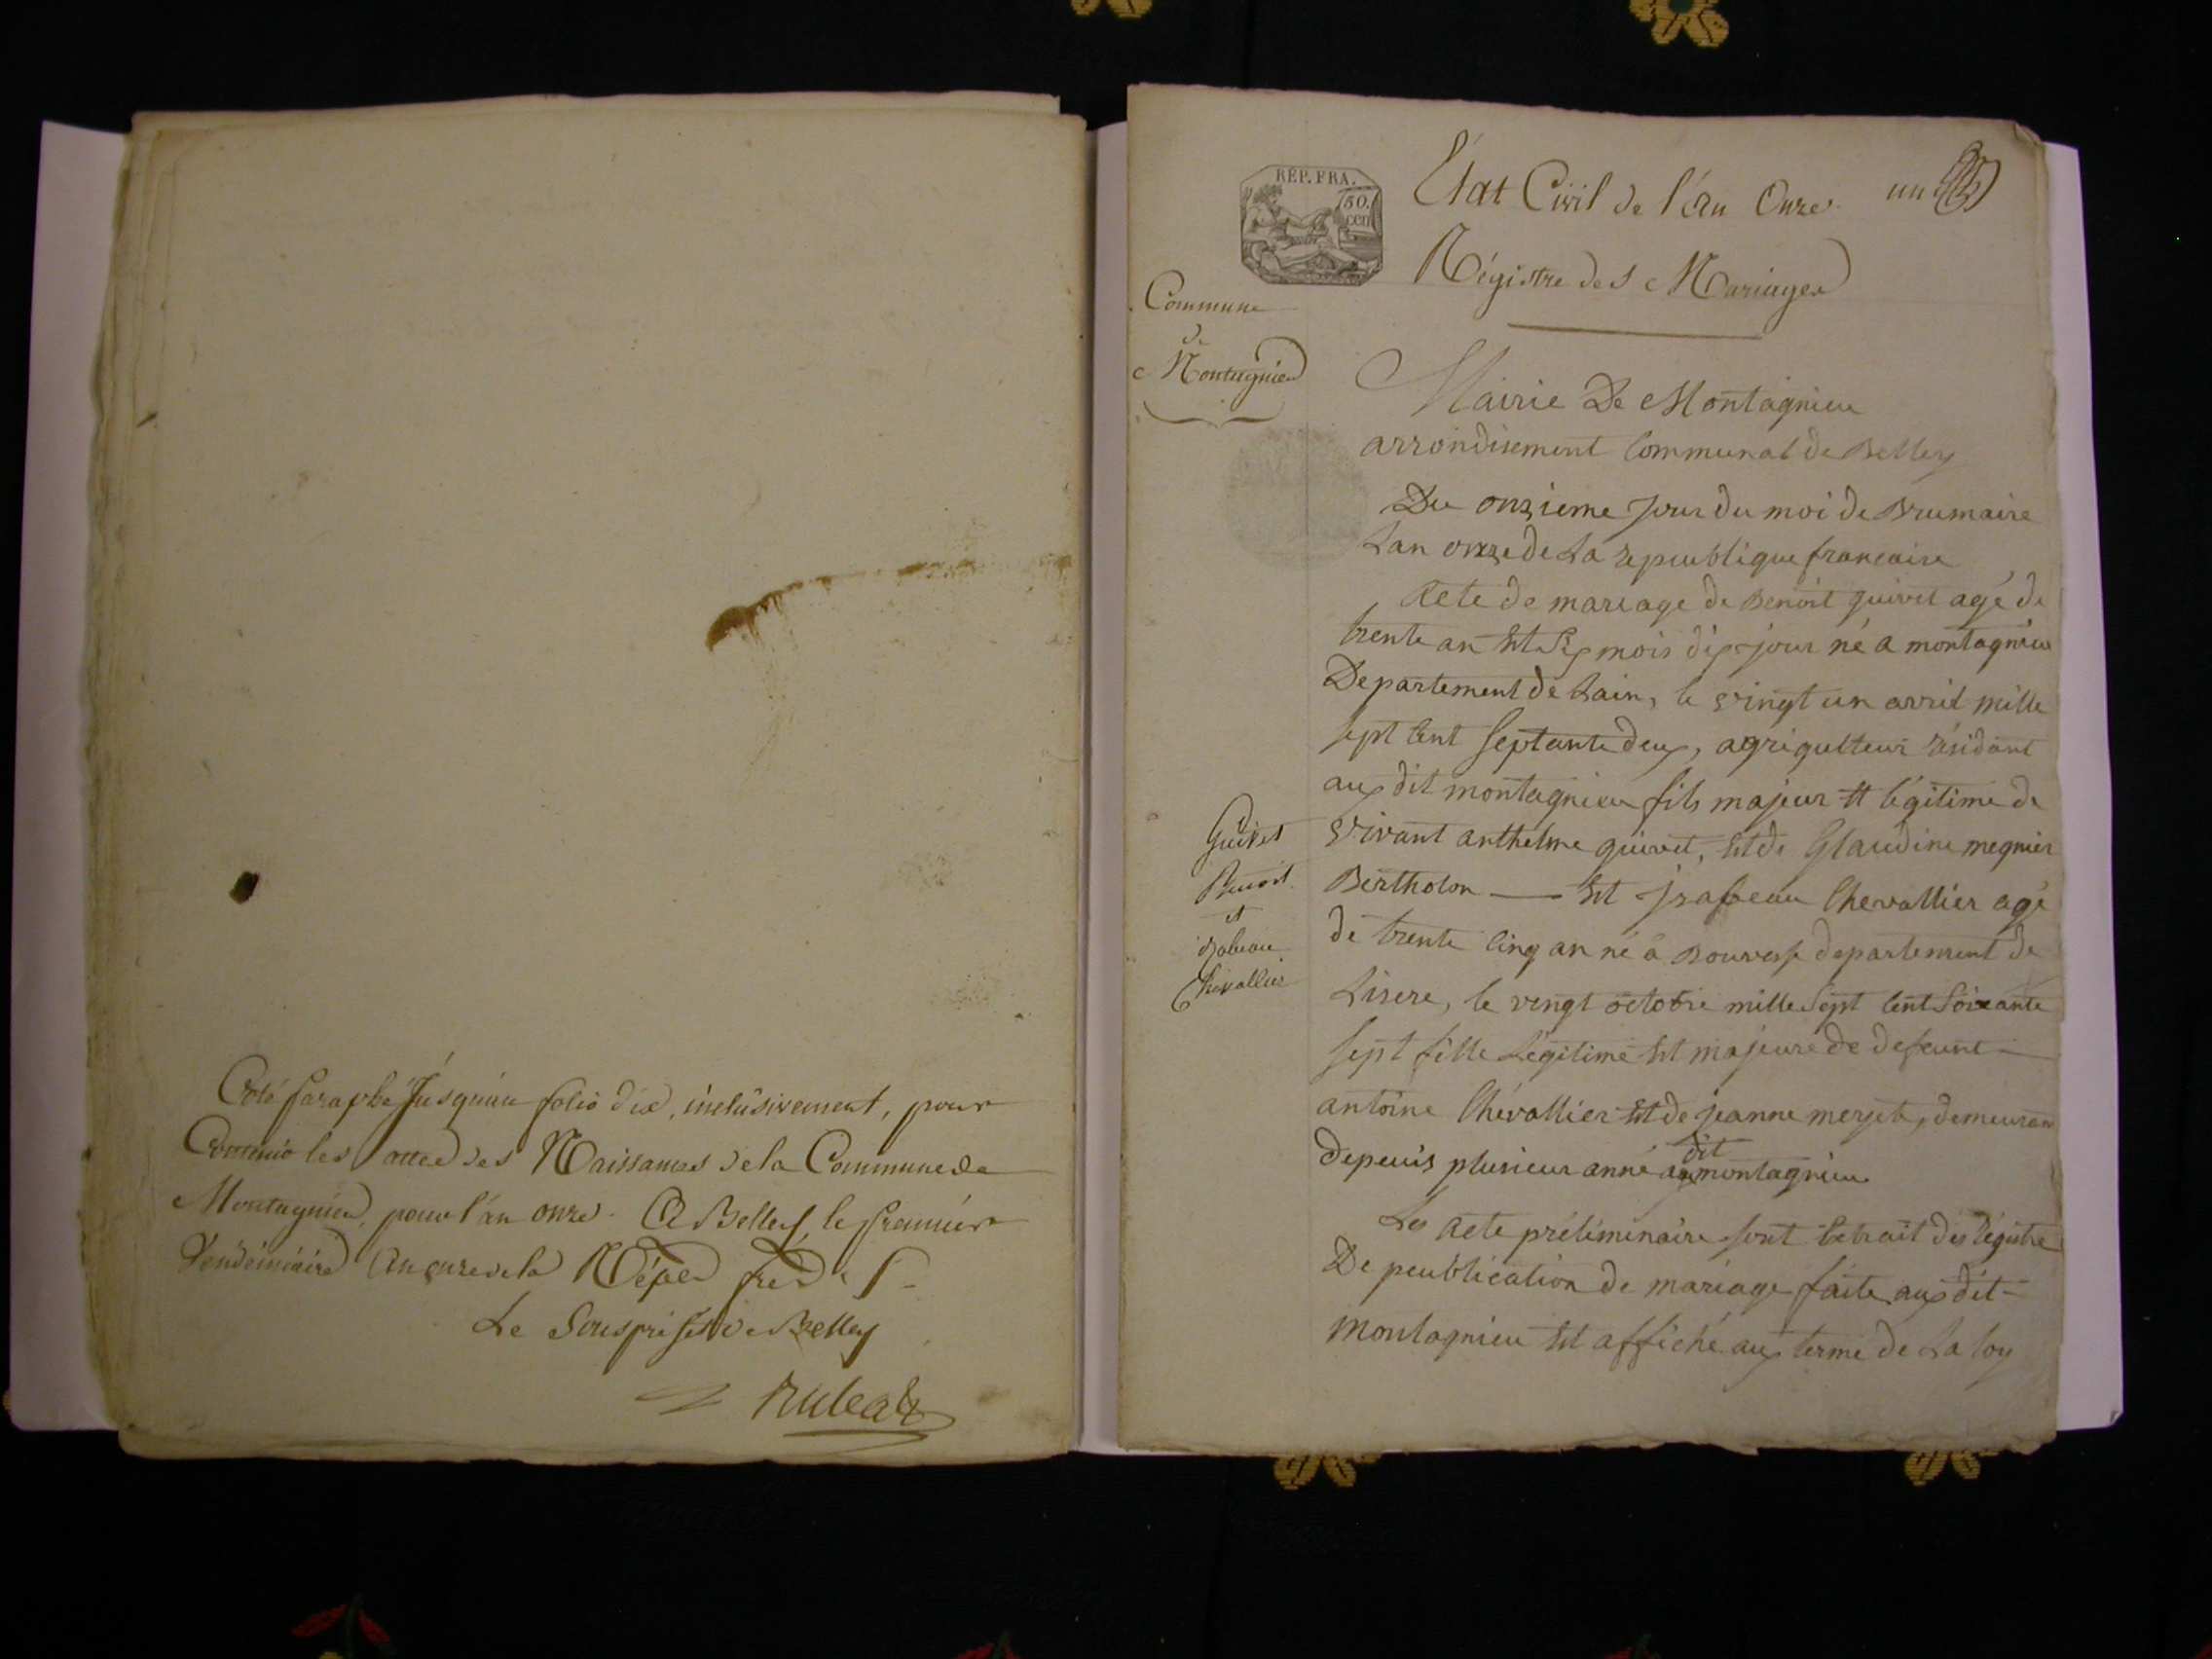 Coté paraphé Jusqu'au folio dix, inclusivement, pour
Contenir les actes des Naissances de la Commune de
Montagnieu, pour l'an onze. A Belley, le premier
Vendémiaire an onze de la Répe fre
Le Souspréfet de Belley
RÉP. FRA.
50.
cen
État Civil de l'an Onze.
un
Régistre des Mariages
Commune
de
Montagnieu
Mairie De Montagnieu
arrondisement Communal de Belley
Du onzieme jour du moi de Brumaire
Lan onze de La republique francaise
Acte de mariage de Benoit guivet agé de
trente an Et Six mois dix jour né a montagnieu
Departement de Lain, le vingt un avril mille
sept Cent septante deux, agriqulteur résidant
aux dit montagnieu fils majeur Et légitime de
vivant anthelme guivet, Et de Glaudine megnier
Bertholon — Et jsabeau Chevallier agé
de trente Cinq an né à Bouvesse departement de
Lisere, le vingt octobre mille Sept Cent Soixante
sept fille Légitime Et majeure de defeunt
antoine Chévallier Et de jeanne merget, demeuran
depeuis plusieur anné au dit montagnieu
Guivet
Benoit
et
Izabeau
Chevallier
Les acte préliminaire sont Extrait des régistre
De peublication de mariage faite aux dit
montagnieu Et affiché aux terme de La loy